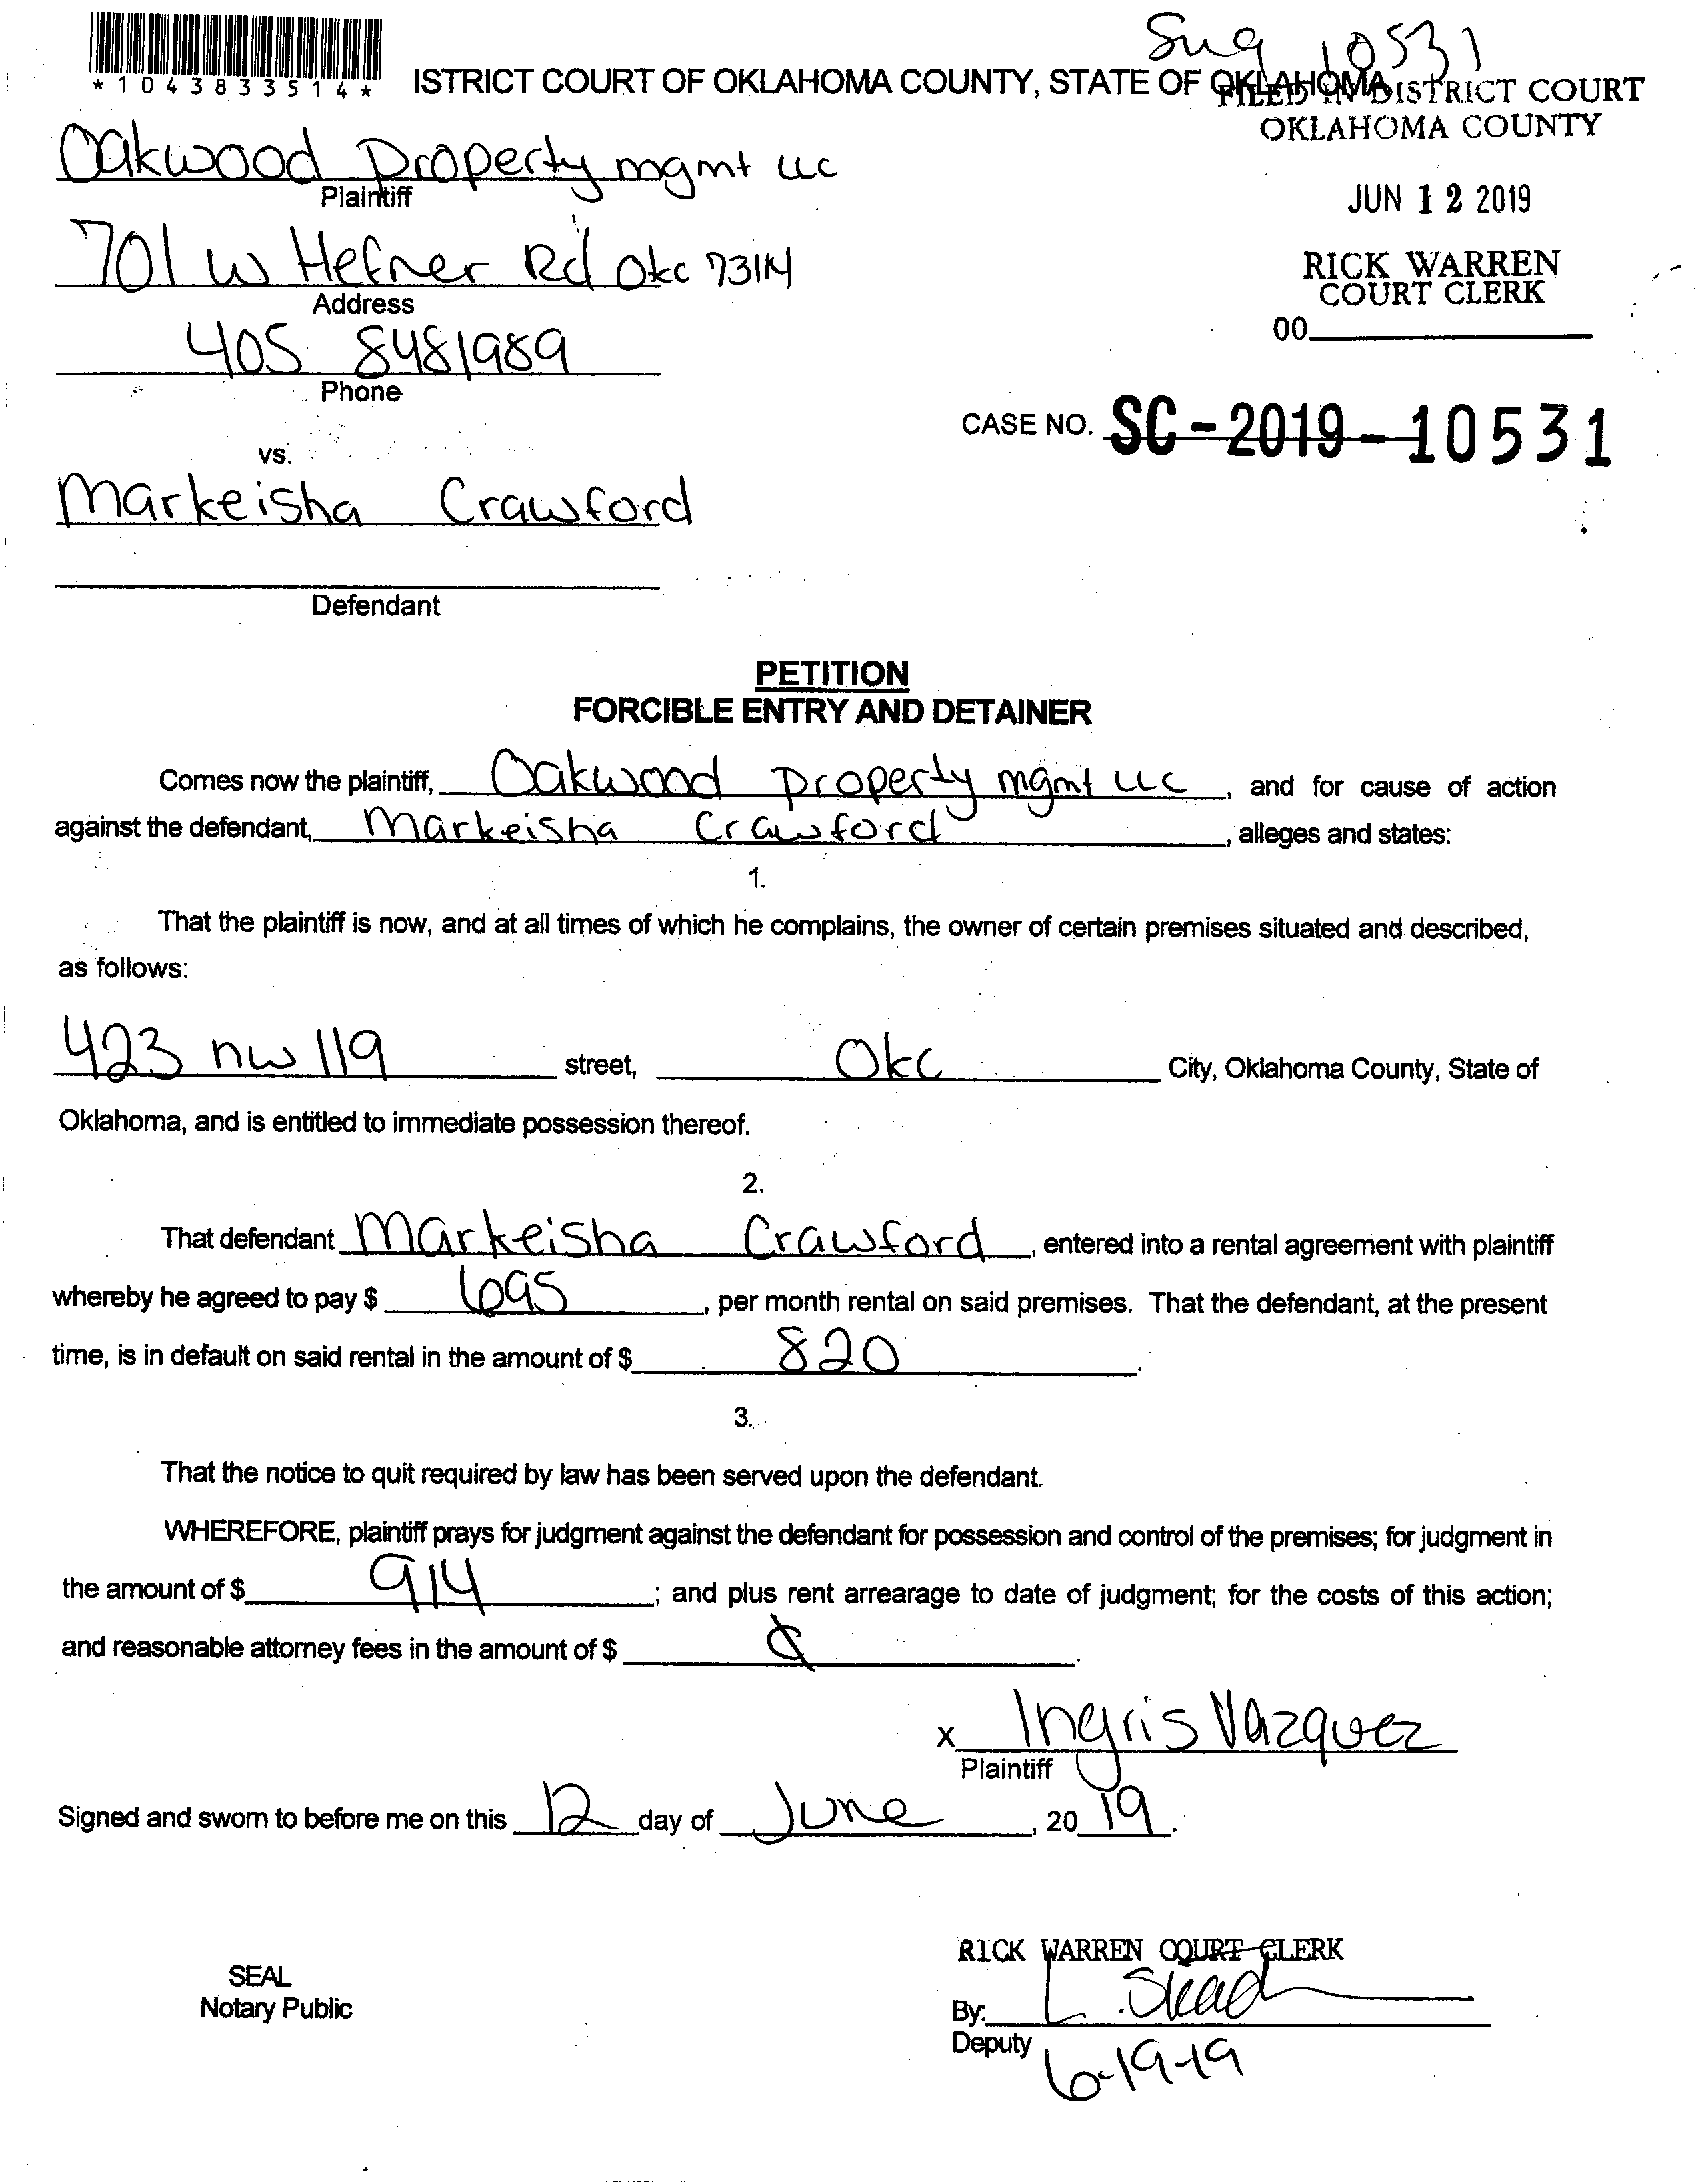 Sug 10531
*1043833514*
ISTRICT COURT OF OKLAHOMA COUNTY, STATE OF OKLAHOMA
FILED IN DISTRICT COURT
OKLAHOMA COUNTY
Oakwood Property mgmt LLC
Plaintiff
JUN 12 2019
701 W Hefner Rd Okc 73114
Address
RICK WARREN
COURT CLERK
405 8481989
Phone
00
CASE NO. SC-2019-10531
vs.
Markeisha Crawford
Defendant
PETITION
FORCIBLE ENTRY AND DETAINER
Comes now the plaintiff, Oakwood Property mgmt LLC, and for cause of action
against the defendant, Markeisha Crawford, alleges and states:
1.
That the plaintiff is now, and at all times of which he complains, the owner of certain premises situated and described,
as follows:
423 nw 119 street, Okc City, Oklahoma County, State of
Oklahoma, and is entitled to immediate possession thereof.
2.
That defendant Markeisha Crawford, entered into a rental agreement with plaintiff
whereby he agreed to pay $ 695, per month rental on said premises. That the defendant, at the present
time, is in default on said rental in the amount of $ 820.
3.
That the notice to quit required by law has been served upon the defendant.
WHEREFORE, plaintiff prays for judgment against the defendant for possession and control of the premises; for judgment in
the amount of $ 914; and plus rent arrearage to date of judgment; for the costs of this action;
and reasonable attorney fees in the amount of $ .
x Ingris Vazquez
Plaintiff
Signed and sworn to before me on this 12 day of June, 20 19.
RICK WARREN COURT CLERK
SEAL
Notary Public
By: L.
Deputy
6-19-19